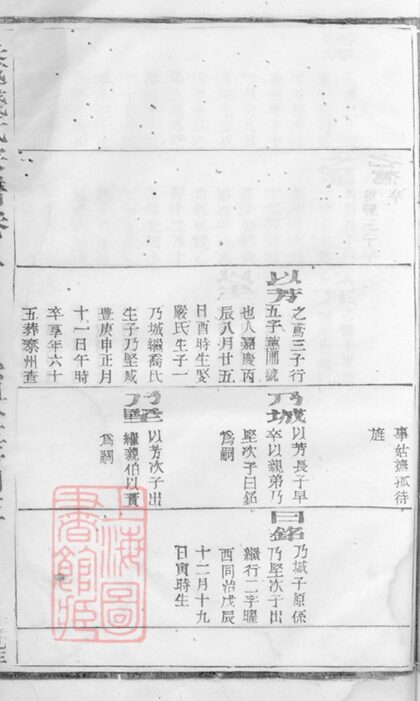 以芳
之鳶三子行
五字蕙圃號
也人嘉慶丙
辰八月廿五
日酉時生娶
嚴氏生子一
乃城繼喬氏
生子乃堅咸
豐庚申正月
十一日午時
卒享年六十
五葬泰州查
事姑撫孤待
旌
乃城
以芳長子早
卒以親弟乃
堅次子曰銘
為嗣
乃堅
以芳次子出
繼親伯以蕡
為嗣
曰銘
乃城子原係
乃堅次子出
繼行二字曜
西同治戊辰
十二月十九
日寅時生
上海圖
書館藏